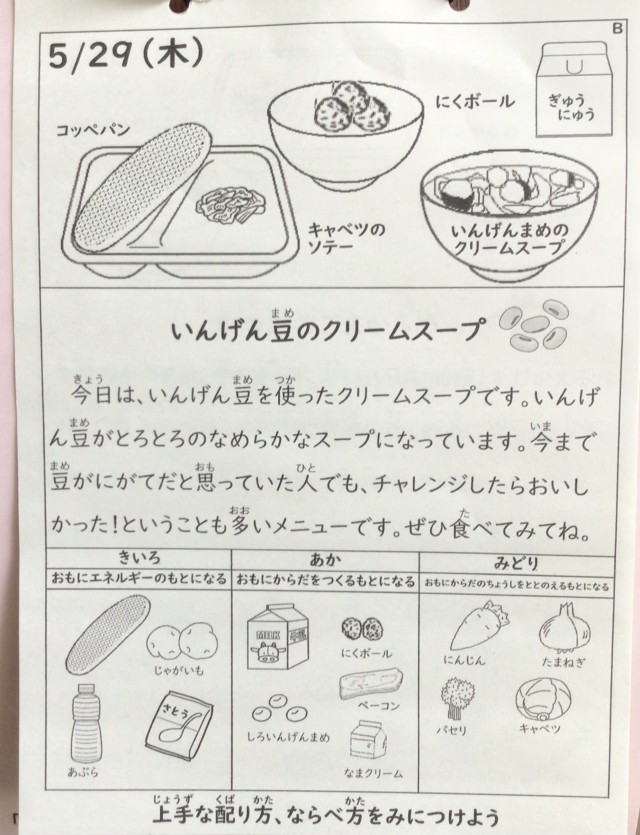 B
5/29（木）
コッペパン
にくボール
ぎゅう
にゅう
キャベツの
ソテー
いんげんまめの
クリームスープ
いんげん豆のクリームスープ
まめ
きょう まめ つか
今日は、いんげん豆を使ったクリームスープです。いんげ
まめ いま
ん豆がとろとろのなめらかなスープになっています。今まで
まめ おも ひと
豆がにがてだと思っていた人でも、チャレンジしたらおいし
おお た
かった！ということも多いメニューです。ぜひ食べてみてね。
きいろ
おもにエネルギーのもとになる
あか
おもにからだをつくるもとになる
みどり
おもにからだのちょうしをととのえるもとになる
じゃがいも
あぶら
さとう
MILK
牛乳
にくボール
ベーコン
しろいんげんまめ
なまクリーム
にんじん
たまねぎ
パセリ
キャベツ
じょうず くば かた かた
上手な配り方、ならべ方をみにつけよう